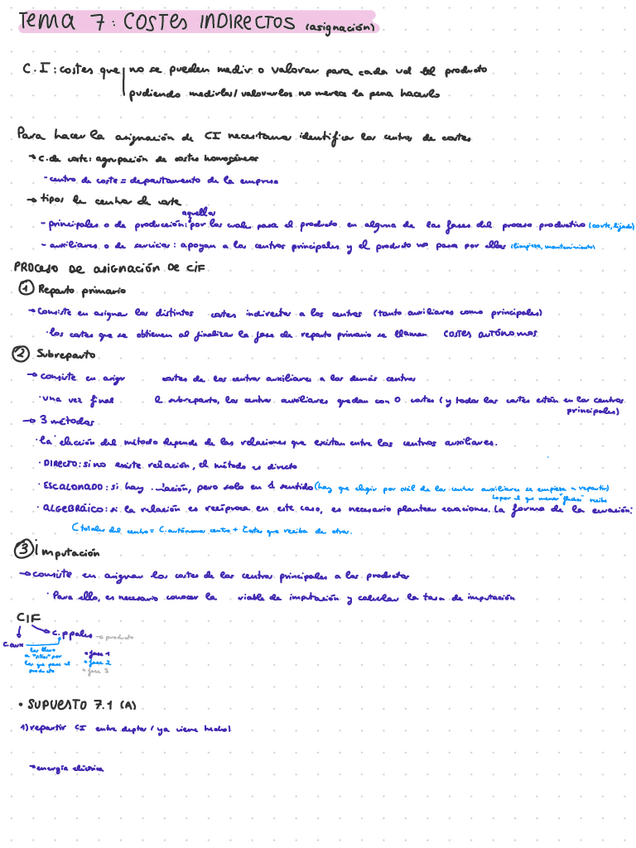 TEMA 7: COSTES INDIRECTOS (asignación)
C.I: costes que no se pueden medir o valorar para cada ud del producto
pudiendo medirlos/valorarlos no merece la pena hacerlo
Para hacer la asignación de CI necesitamos identificar los centros de costes
→ c.de coste: agrupación de costes homogéneos
- centro de coste = departamento de la empresa
→ tipos de centros de coste
aquellos
- principales o de producción: por los cuales pasa el producto en alguna de las fases del proceso productivo (corte, lijado)
- auxiliares o de servicios: apoyan a los centros principales y el producto no pasa por ellos (limpieza, mantenimiento)
PROCESO DE ASIGNACIÓN DE CIF
① Reparto primario
→ consiste en asignar los distintos costes indirectos a los centros (tanto auxiliares como principales)
· los costes que se obtienen al finalizar la fase de reparto primario se llaman COSTES AUTÓNOMOS
② Subreparto
→ consiste en asign costes de los centros auxiliares a los demás centros
· una vez final l subreparto, los centros auxiliares quedan con 0 costes (y todos los costes están en los centros
principales)
→ 3 métodos
· la elección del método depende de las relaciones que existan entre los centros auxiliares.
· DIRECTO: si no existe relación, el método es directo
· ESCALONADO: si hay relación, pero solo en 1 sentido (hay que elegir por cuál de los centros auxiliares se empieza a repartir)
por el que menos "flechas" recibe
· ALGEBRÁICO: si la relación es recíproca en este caso, es necesario plantear ecuaciones. La forma de la ecuación:
C totales del centro = C. autónomos centro + Costes que reciba de otros.
③ Imputación
→ consiste en asignar los costes de los centros principales a los productos
· Para ello, es necesario conocer la viable de imputación y calcular la tasa de imputación
CIF
C.aux
c.ppales → producto
los llevo
a "ppales" por
los que pasa el
producto
• fase 1
• fase 2
• fase 3
• SUPUESTO 7.1 (A)
1) repartir CI entre deptos (ya viene hecho)
→ energía eléctrica